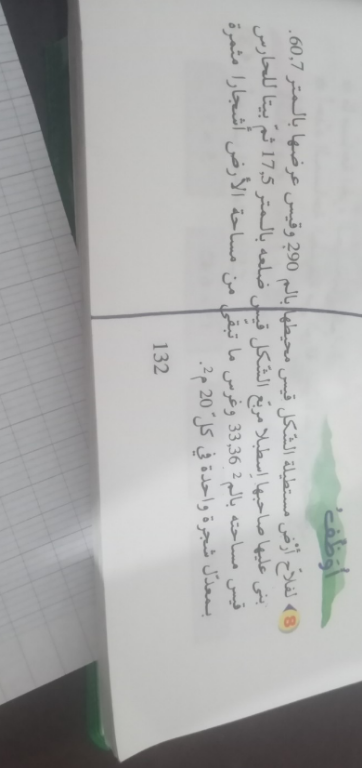 أوظّف
8 لفلاّح أرض مستطيلة الشكل قيس محيطها بالم 290 وقيس عرضها بالمتر 60,7.
بنى عليها صاحبها إسطبلا مربّع الشكل قيس ضلعه بالمتر 17,5 ثمّ بيتا للحارس
قيس مساحته بالم² 33,36 وغرس ما تبقى من مساحة الأرض أشجارا مثمرة
بمعدّل شجرة واحدة في كلّ 20 م².
132